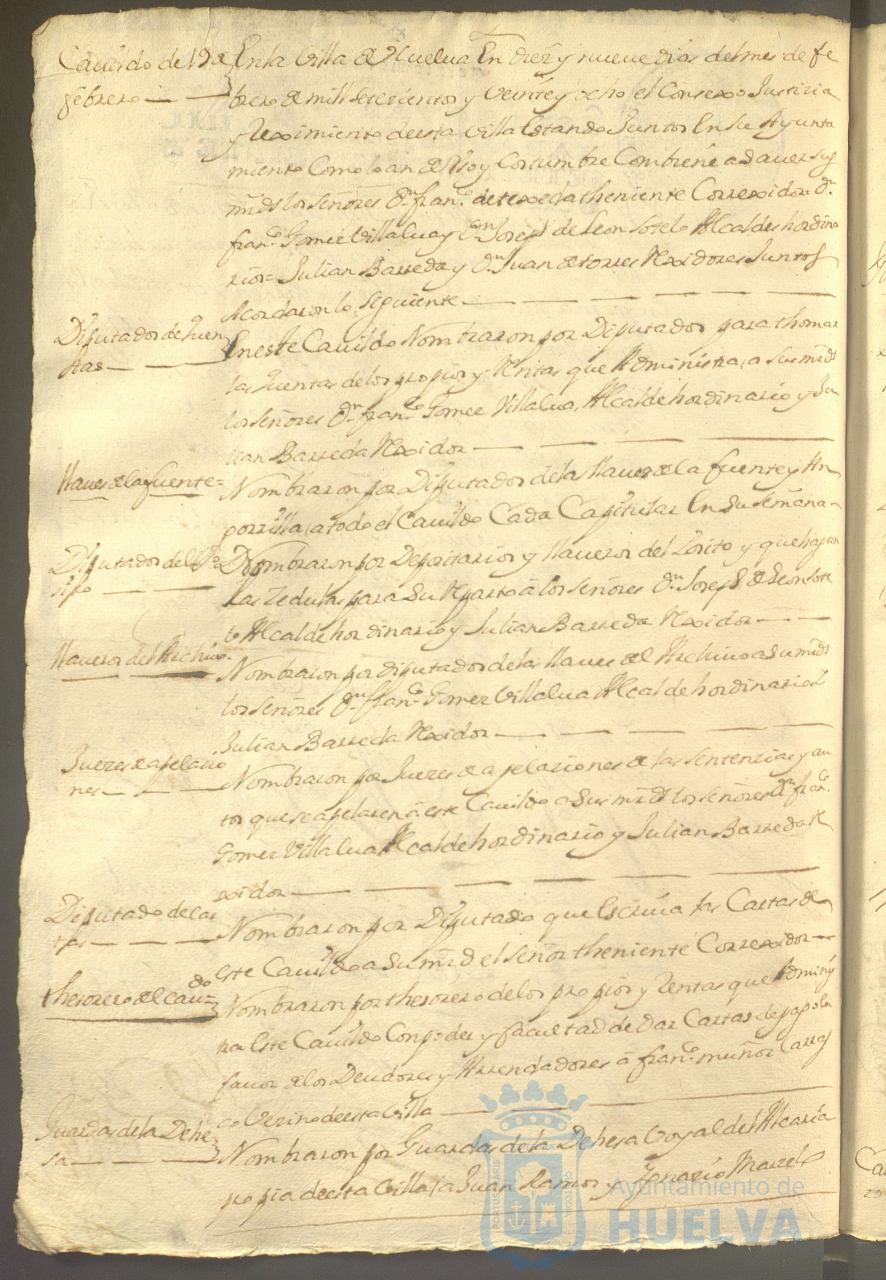 Cauildo de 19 de
febrero
En la Villa de Huelua En diez y nueve dias del mes de fe
brero de mill setecientos y Veinte y ocho el Consexo Justicia
y Reximiento de esta Villa Estando Juntos En su Ayunta
miento Como lo an de Vso y Costumbre Combiene a sauer sus
mrds los señores Dn. franco. de texeda theniente Correxidor Dn.
franco. Gomez Villalua y Dn Joseph de Leon Sotelo Alcaldes hordina
rios = Julian Barreda y Dn Juan de torres Rexidores Juntos
Acordaron lo siguiente
Diputados de quen
tas
En este Cauildo Nombraron por Diputados para thomar
las quentas de los propios y Rentas que Administra, a sus mrds
los señores Dn. franco. Gomez Villalua, Alcalde hordinario y Ju
lian Barreda Rexidor
Llaues de la fuente =
Nombraron por Diputados de las llaues de la fuente y An
gorrilla, a todo el Cauildo Cada Capitular En su semana
Diputados del Po
sito
Nombraron por Depositarios y llaueros del Posito y que hagan
las Zedulas para su Reparto á los señores Dn. Joseph de Leon Sote
lo Alcalde hordinario y Julian Barreda Rexidor
llaueros del Archivo.
Nombraron por diputados de las llaues del Archiuo a sus mrds
los señores Dn. franco. Gomez Villalua Alcalde hordinario y
Julian Barreda Rexidor
Juezes de apelacio
nes
Nombraron por Juezes de apelaziones de las sentencias y au
tos que se apelaren á este Cauildo a sus mrds los señores Dn. franco.
Gomez Villalua Alcalde hordinario y Julian Barreda Re
xidor
Diputado de Car
tas
Nombraron por Diputado que Escriua las Cartas de
este Cauildo a su mrd el señor theniente Correxidor
thesorero del caudo
Nombraron por thesorero de los propios y Rentas que Adminis
tra Este Cauildo Con poder y facultad de Dar Cartas de pago a
fauor de los Deudores y Arrendadores á franco. muñoz Carras
co Vezino de esta Villa
Guardas de la Dehe
sa
Nombraron por Guardas de la Dehesa Boyal del Alcaria
propia de esta Villa, a Juan Ramos y Ignacio Marzelo
Ayuntamiento de
HUELVA